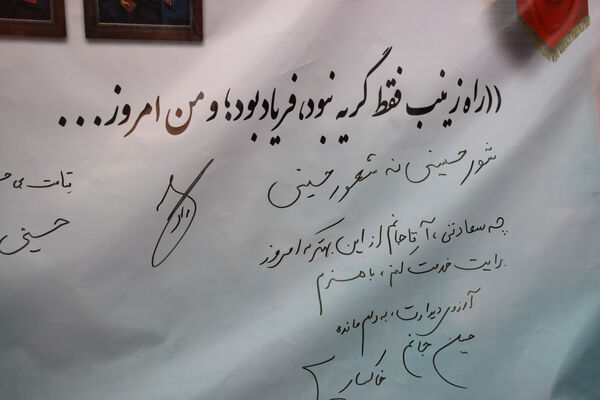 ((راه زینب فقط گریه نبود، فریاد بود؛ و من امروز...
شور حسینی نه شعور حسینی
چه سعادتی، آقا جانم از این بهتر که امروز
برایت خدمت کنم، با
آرزوی دیدارت، به دلم مانده
حسین جانم
خاکسار
حسینی